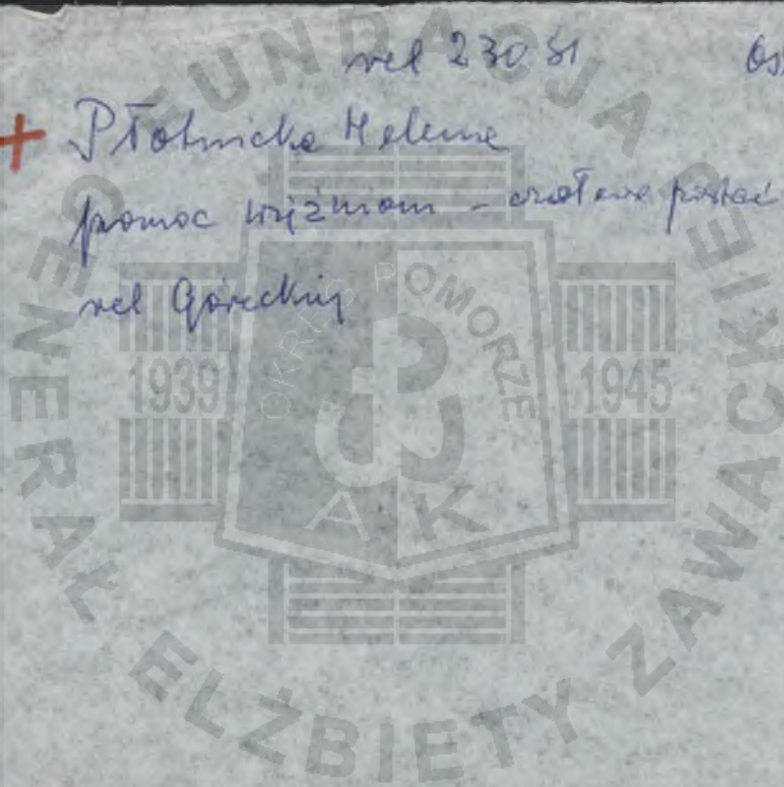 rel 230 Sł Oś
+ Płotnicka Helena
pomoc więźniom - czołowa postać
rel Góreckiej
FUNDACJA GENERAŁ ELŻBIETY ZAWACKIEJ
OKRĘG POMORZE
1939 1945
AK